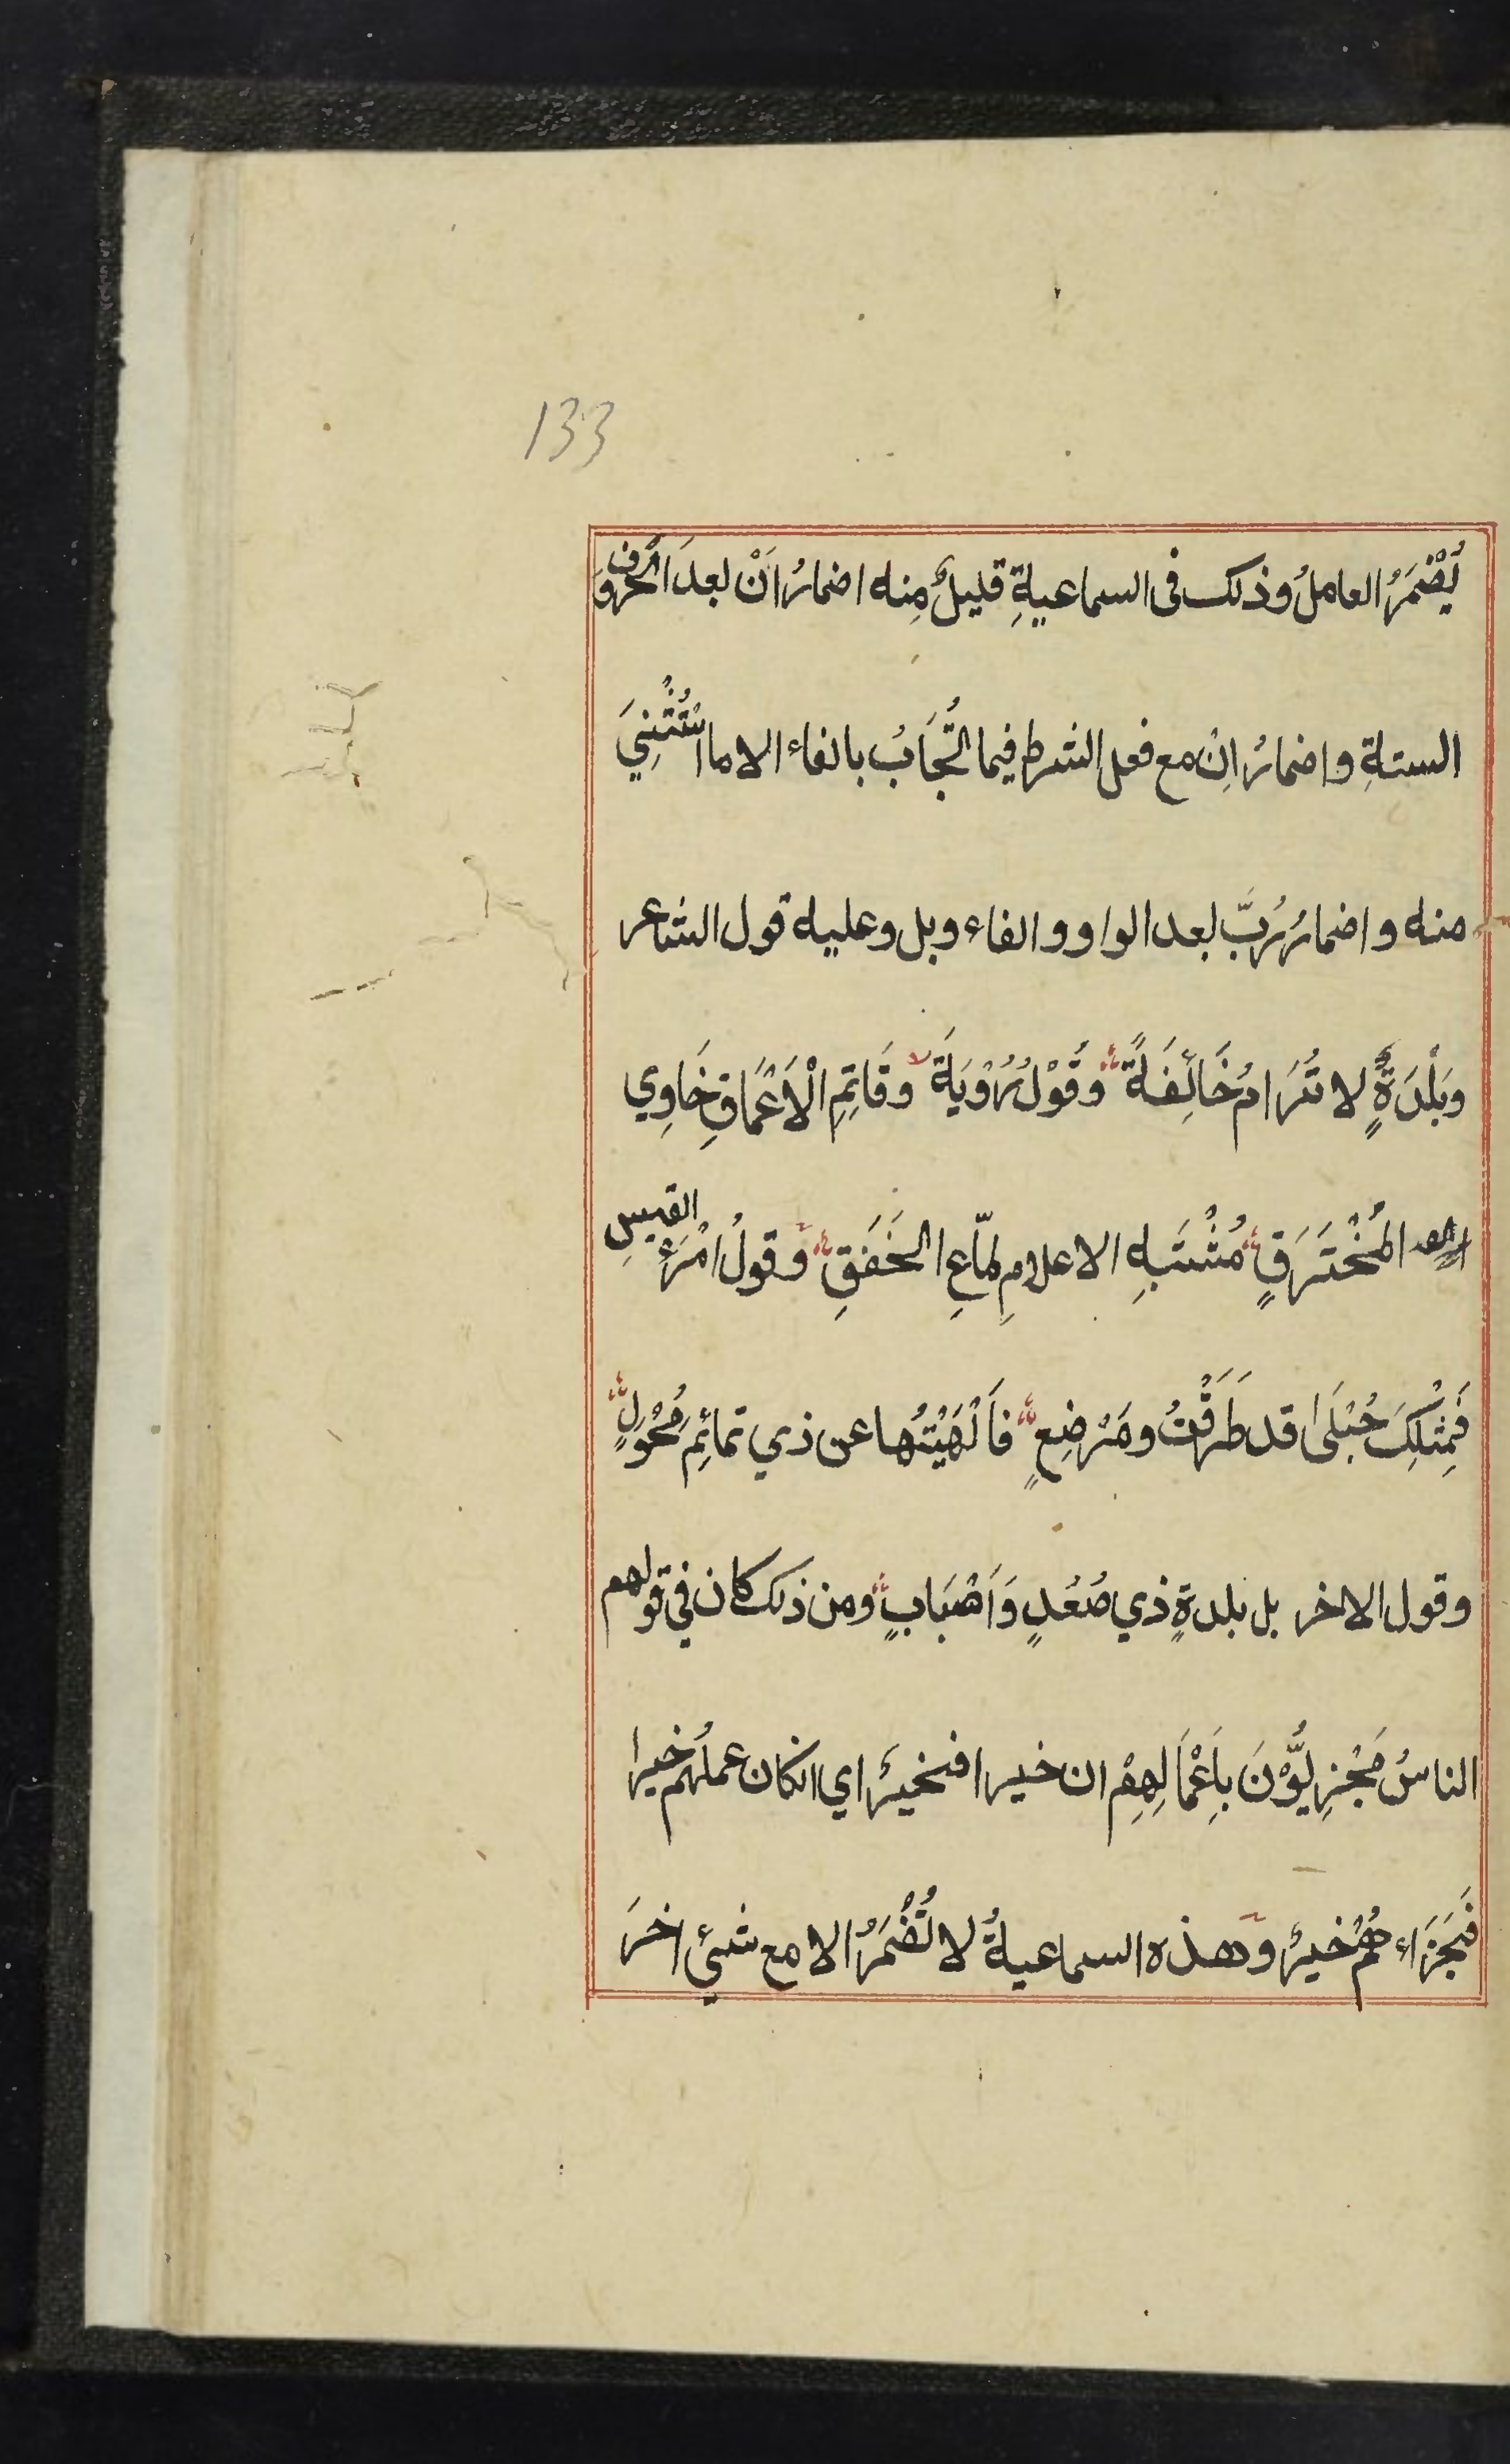 133
يُضْمَرُ العاملُ وذلك فى السماعيةِ قليلٌ مِنه اضمارُ اَنْ بعدَ الحروفِ
الستةِ و اضمارُ اِنْ مع فعل الشرط فيما تُجَابُ بالفاء الا ما اسْتُثْنِيَ
منه و اضمارُ رُبَّ بعد الواو و الفاء وبل وعليه قول الشاعر
وَبَلْدَةٍ لا تُرَامُ خَائِفَةً وَقَوْلُ رُوْيَةَ وَقَاتِمِ الْاَعْمَاقِ خَاوِي
المُخْتَرَقِ مُشْتَبِهِ الاعلامِ لمّاعِ الخَفَقِ وقولُ امْرَءِ القيسِ
فَمِثْلِكَ حُبْلَى قد طَرَقْتُ ومَرْضِعٍ فَاَلْهَيْتُها عن ذي تمائِمِ مُحْوِلٍ
وقول الاخر بل بلدةٍ ذي صُعُدٍ وَاَصْبَابٍ ومن ذلك كان في قولهم
الناسُ مَجْزِيُّوْنَ بِاَعْمَالِهِمْ ان خيرا فخيرٌ اي انكان عملُهم خيرا
فَجَزَاءُهُمْ خيرٌ وهذه السماعيةُ لا تُضْمَرُ الا مع شئ اخرَ